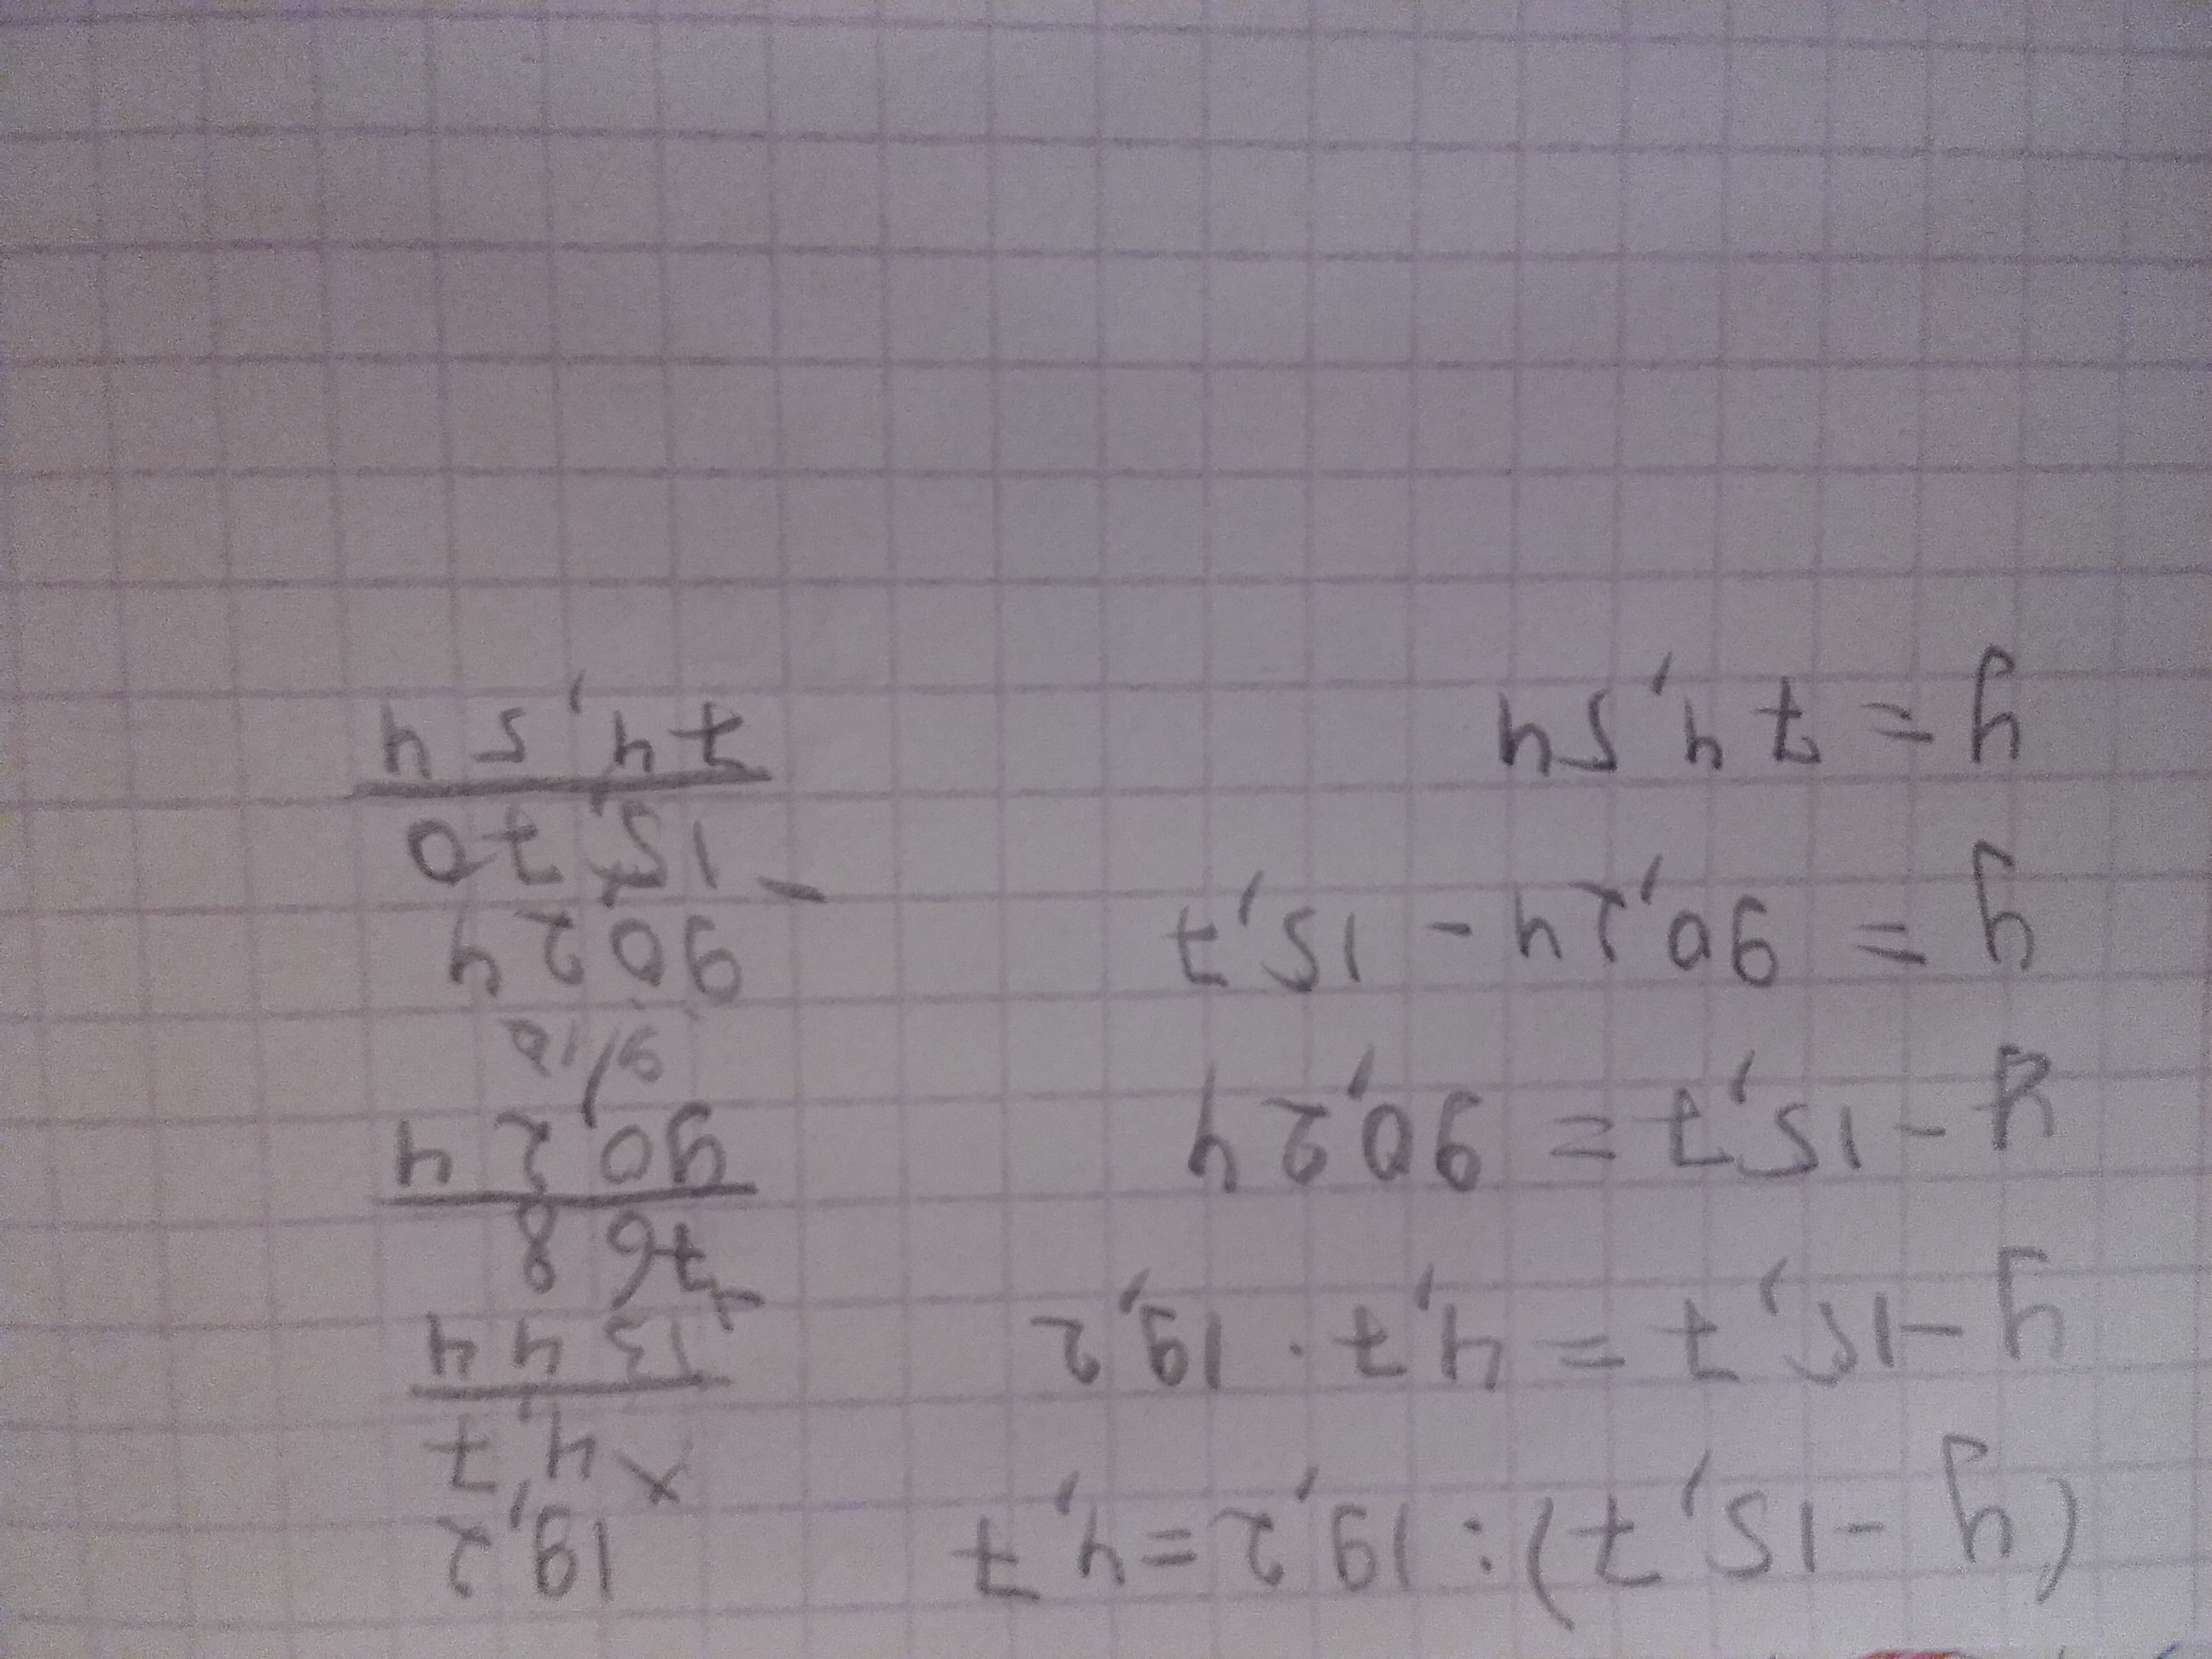 (y - 15,7) : 19,2 = 4,7
y - 15,7 = 4,7 · 19,2
y - 15,7 = 90,24
y = 90,24 - 15,7
y = 74,54
19,2
× 4,7
1344
+ 768
90,24
9 10
90,24
- 15,70
74,54